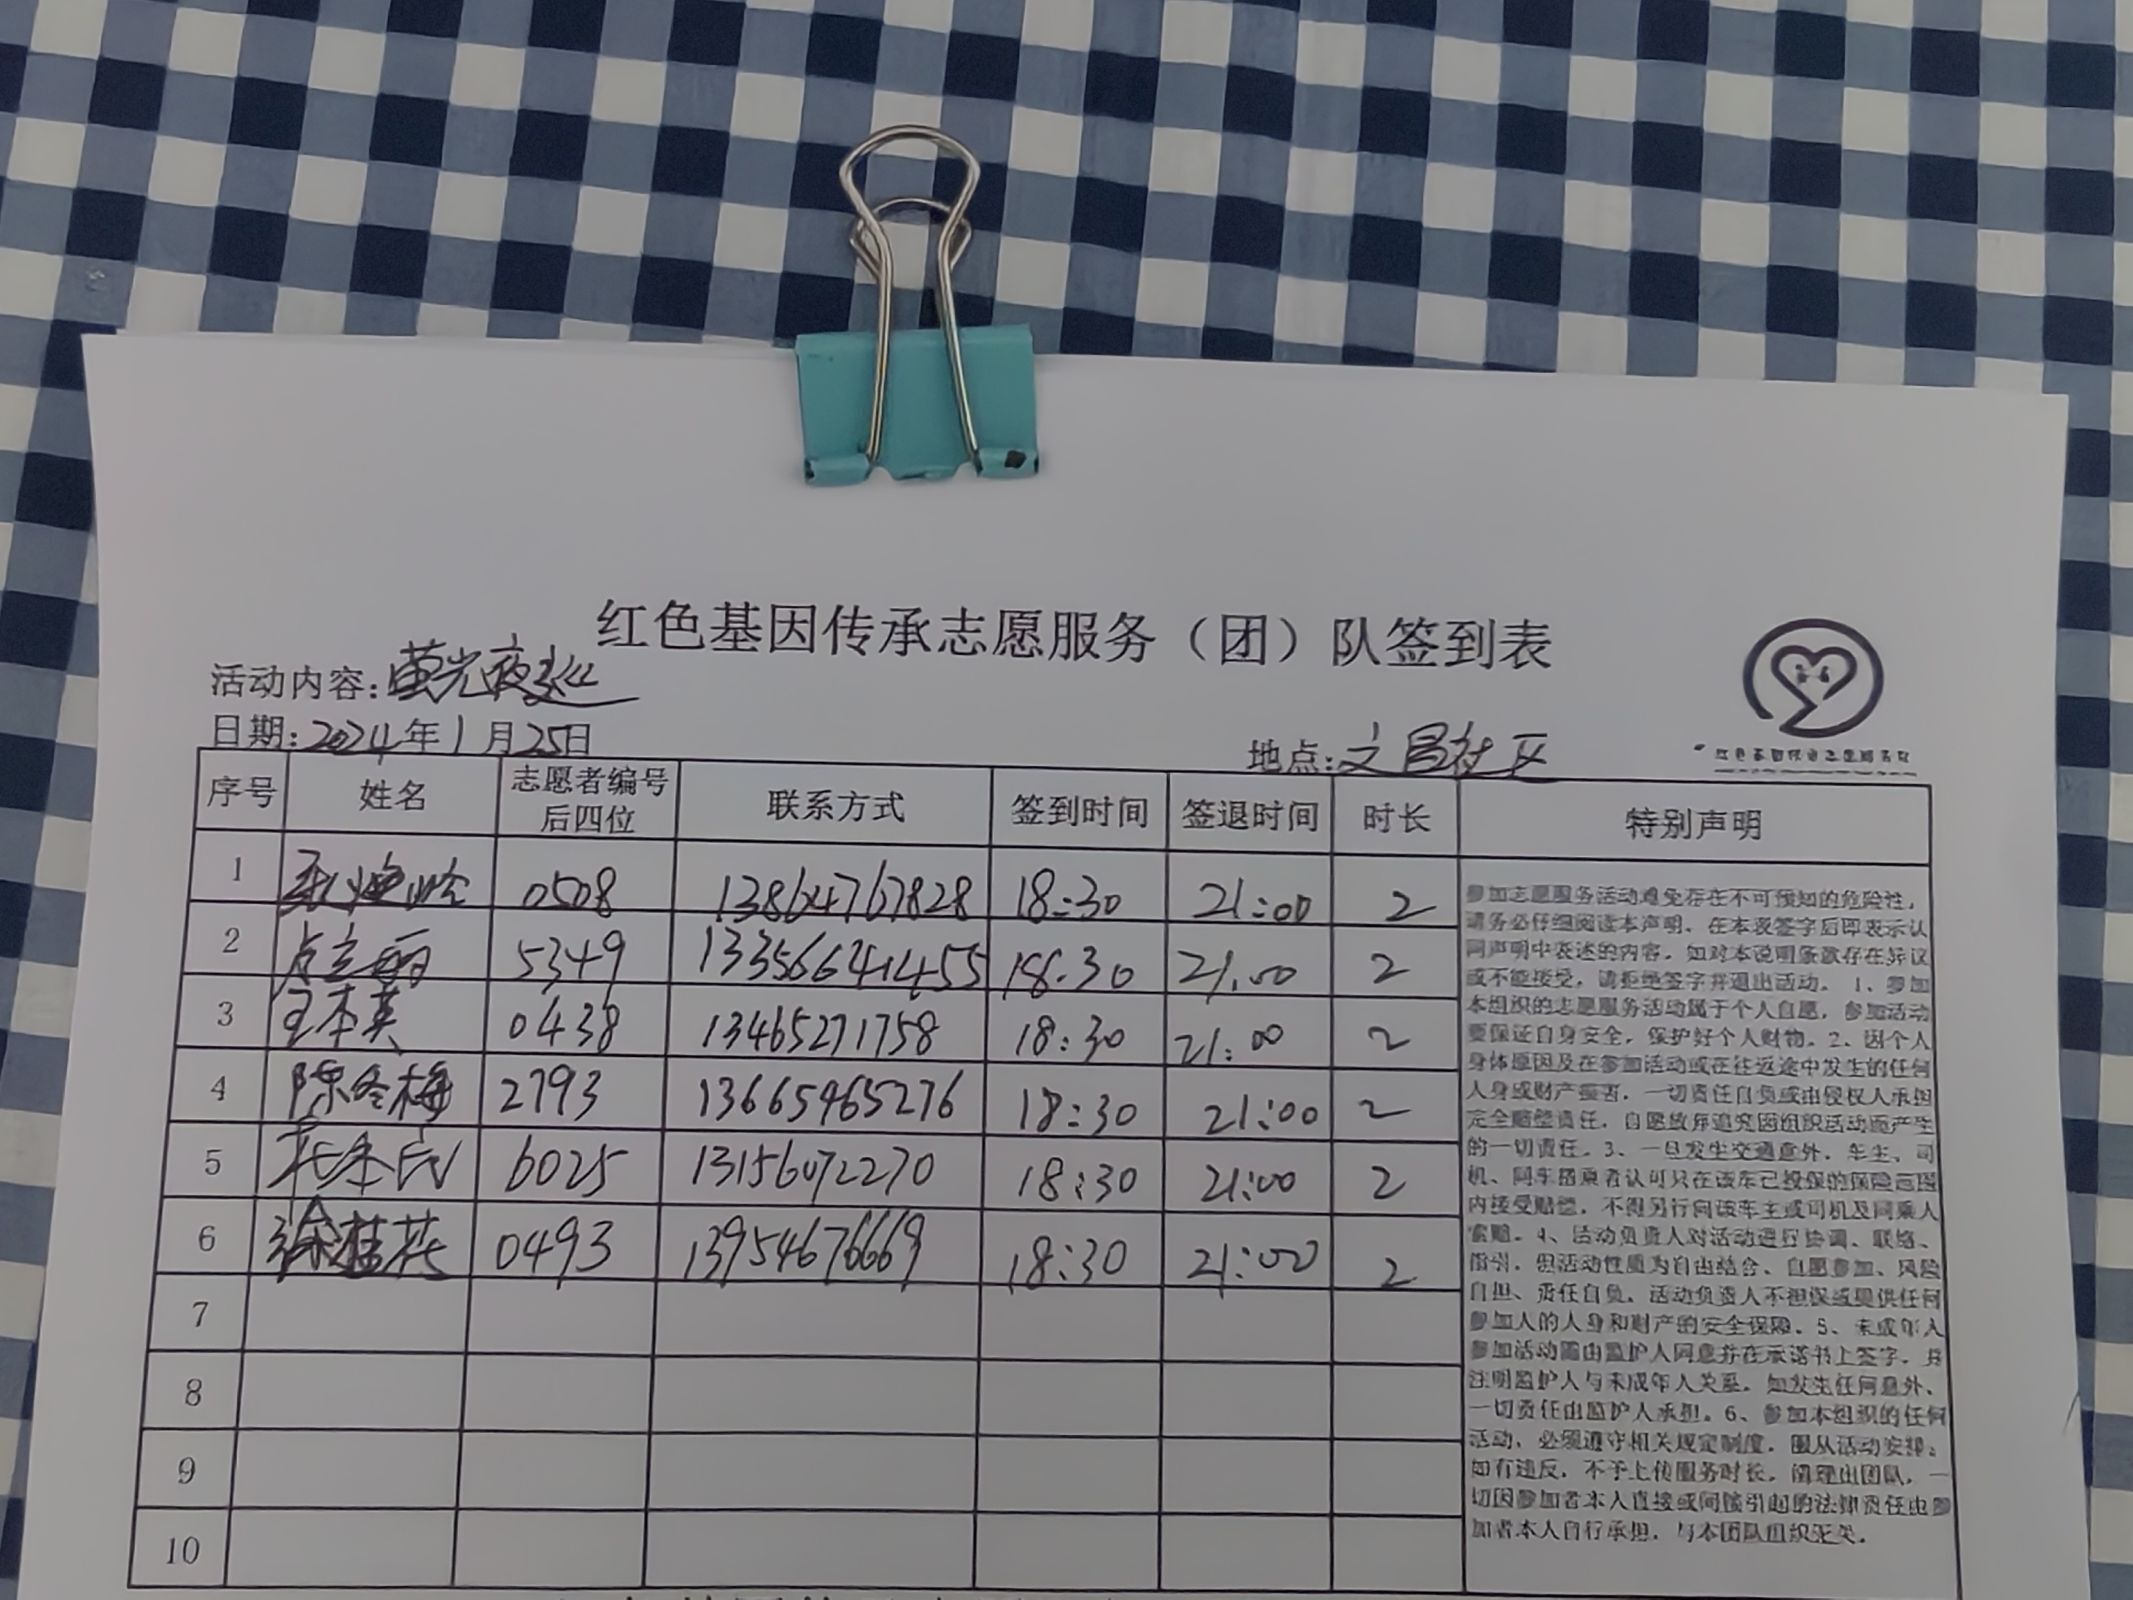 红色基因传承志愿服务（团）队签到表
活动内容:萤光夜巡
日期:2024年1月25日 地点:文昌社区
序号 姓名 志愿者编号后四位 联系方式 签到时间 签退时间 时长 特别声明
1 0508 13864767828 18:30 21:00 2
2 卢立丽 5349 13356641455 18:30 21:00 2
3 王本英 0438 13465271758 18:30 21:00 2
4 陈冬梅 2793 13665465276 18:30 21:00 2
5 6025 13156072270 18:30 21:00 2
6 徐桂花 0493 13954676669 18:30 21:00 2
7
8
9
10
参加志愿服务活动难免存在不可预知的危险性，
请务必仔细阅读本声明。在本表签字后即表示认
同声明中表述的内容。如对本说明条款存在异议
或不能接受，请拒绝签字并退出活动。1、参加
本组织的志愿服务活动属于个人自愿，参加活动
要保证自身安全，保护好个人财物。2、因个人
身体原因及在参加活动或在往返途中发生的任何
人身或财产损害，一切责任自负或由侵权人承担
完全赔偿责任，自愿放弃追究因组织活动而产生
的一切责任。3、一旦发生交通意外，车主、司
机、同车搭乘者认可只在该车已投保的保险范围
内接受赔偿，不得另行向该车主或司机及同乘人
索赔。4、活动负责人对活动进行协调、联络、
指引，但活动性质为自由结合、自愿参加、风险
自担、责任自负，活动负责人不担保或提供任何
参加人的人身和财产的安全保障。5、未成年人
参加活动需由监护人同意并在承诺书上签字，并
注明监护人与未成年人关系，如发生任何意外、
一切责任由监护人承担。6、参加本组织的任何
活动，必须遵守相关规定制度，服从活动安排；
如有违反，不予上传服务时长，清理出团队，一
切因参加者本人直接或间接引起的法律责任由参
加者本人自行承担，与本团队组织无关。